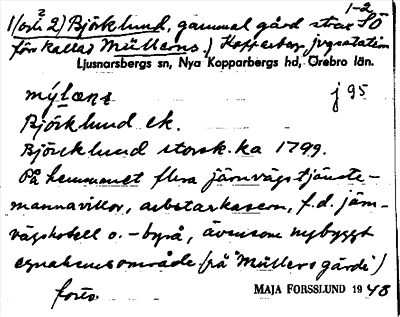 1-2
1(och 2) Björklund, gammal gård strax SÖ
för kallas Müllerns, Kopparberg jvgsstation
Ljusnarsbergs sn, Nya Kopparbergs hd, Örebro län.
mýlæns j 95
Björklund ek.
Björcklund storsk.ka 1799.
På hemmanet flera järnvägstjänste-
mannavillor, arbetarkasern, f.d. järn-
vägshotell o. -byrå, även som nybyggt
egnahemsområde (på "Müllers gärde")
forts.
MAJA FORSSLUND 1948